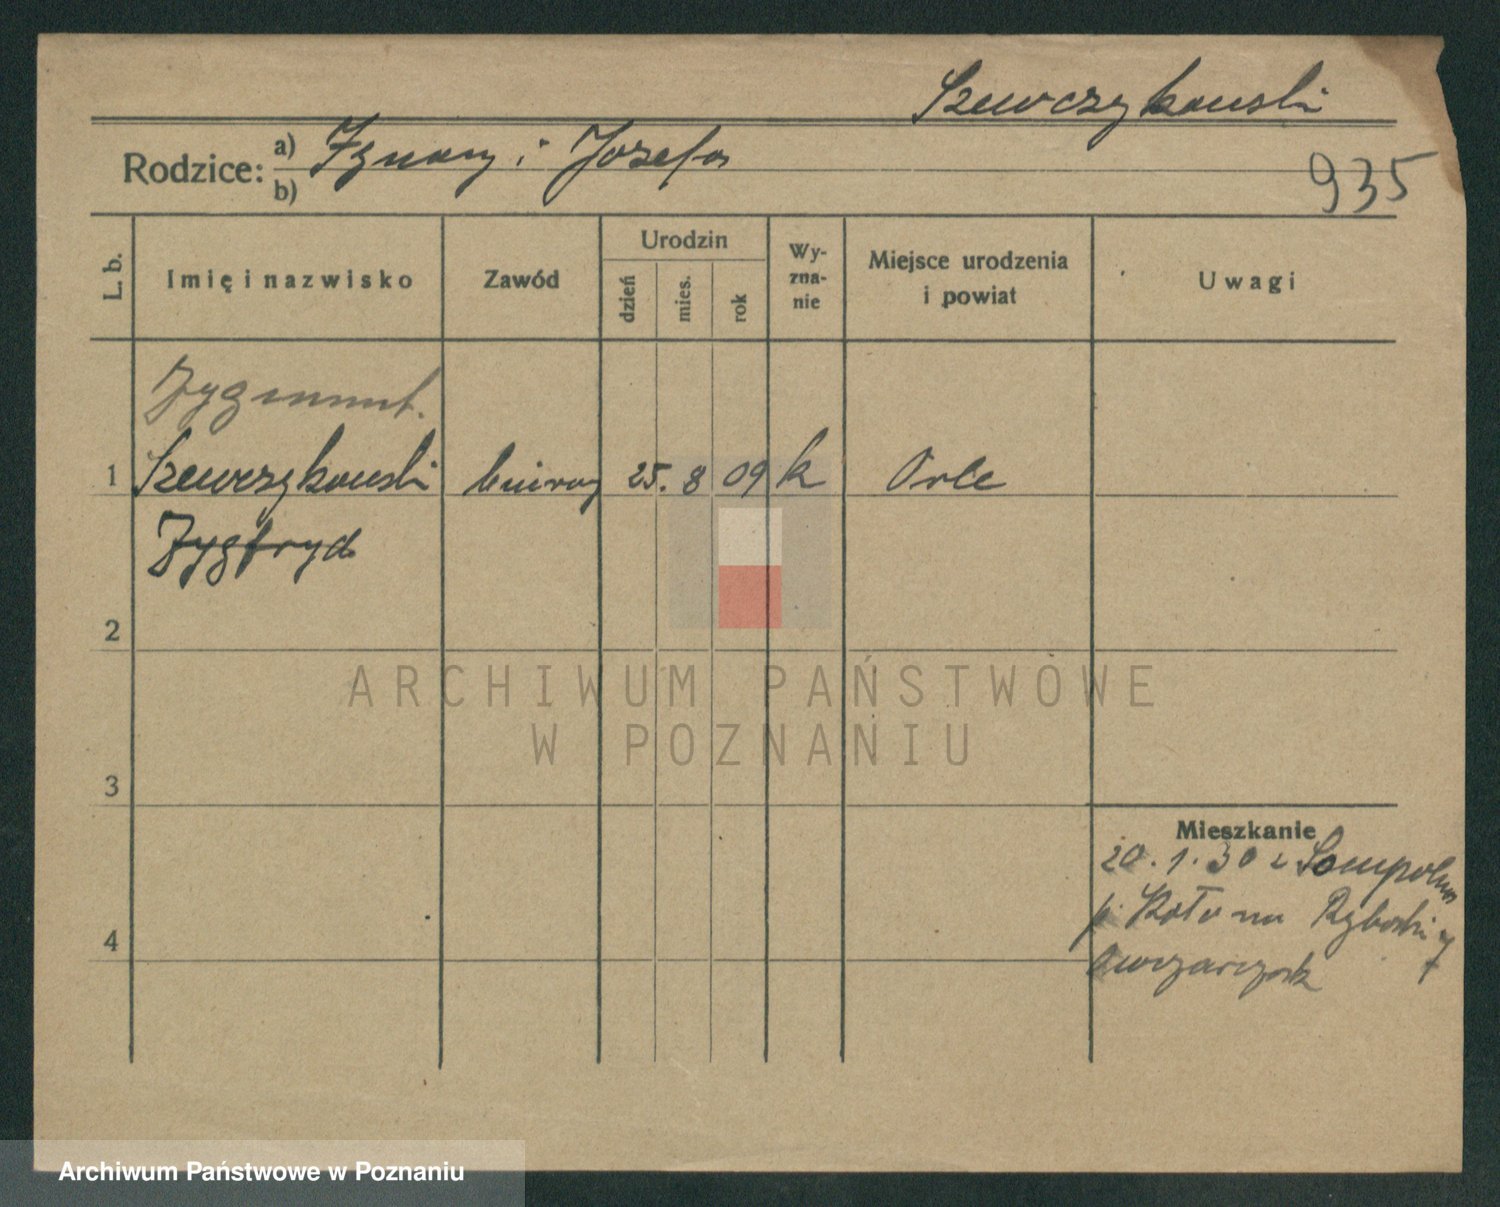 Szewczykowski
Rodzice: a) Ignacy i Józefa
b)
935
L. b.
Imię i nazwisko
Zawód
Urodzin
dzień
mies.
rok
Wy-
zna-
nie
Miejsce urodzenia
i powiat
Uwagi
Zygmunt.
1 Szewczykowski biurowy 25. 8 09 k Orle
Zygfryd
2
3
4
Mieszkanie
20. 1. 30 z Sompolna
p. Koło na
ARCHIWUM PAŃSTWOWE
W POZNANIU
Archiwum Państwowe w Poznaniu